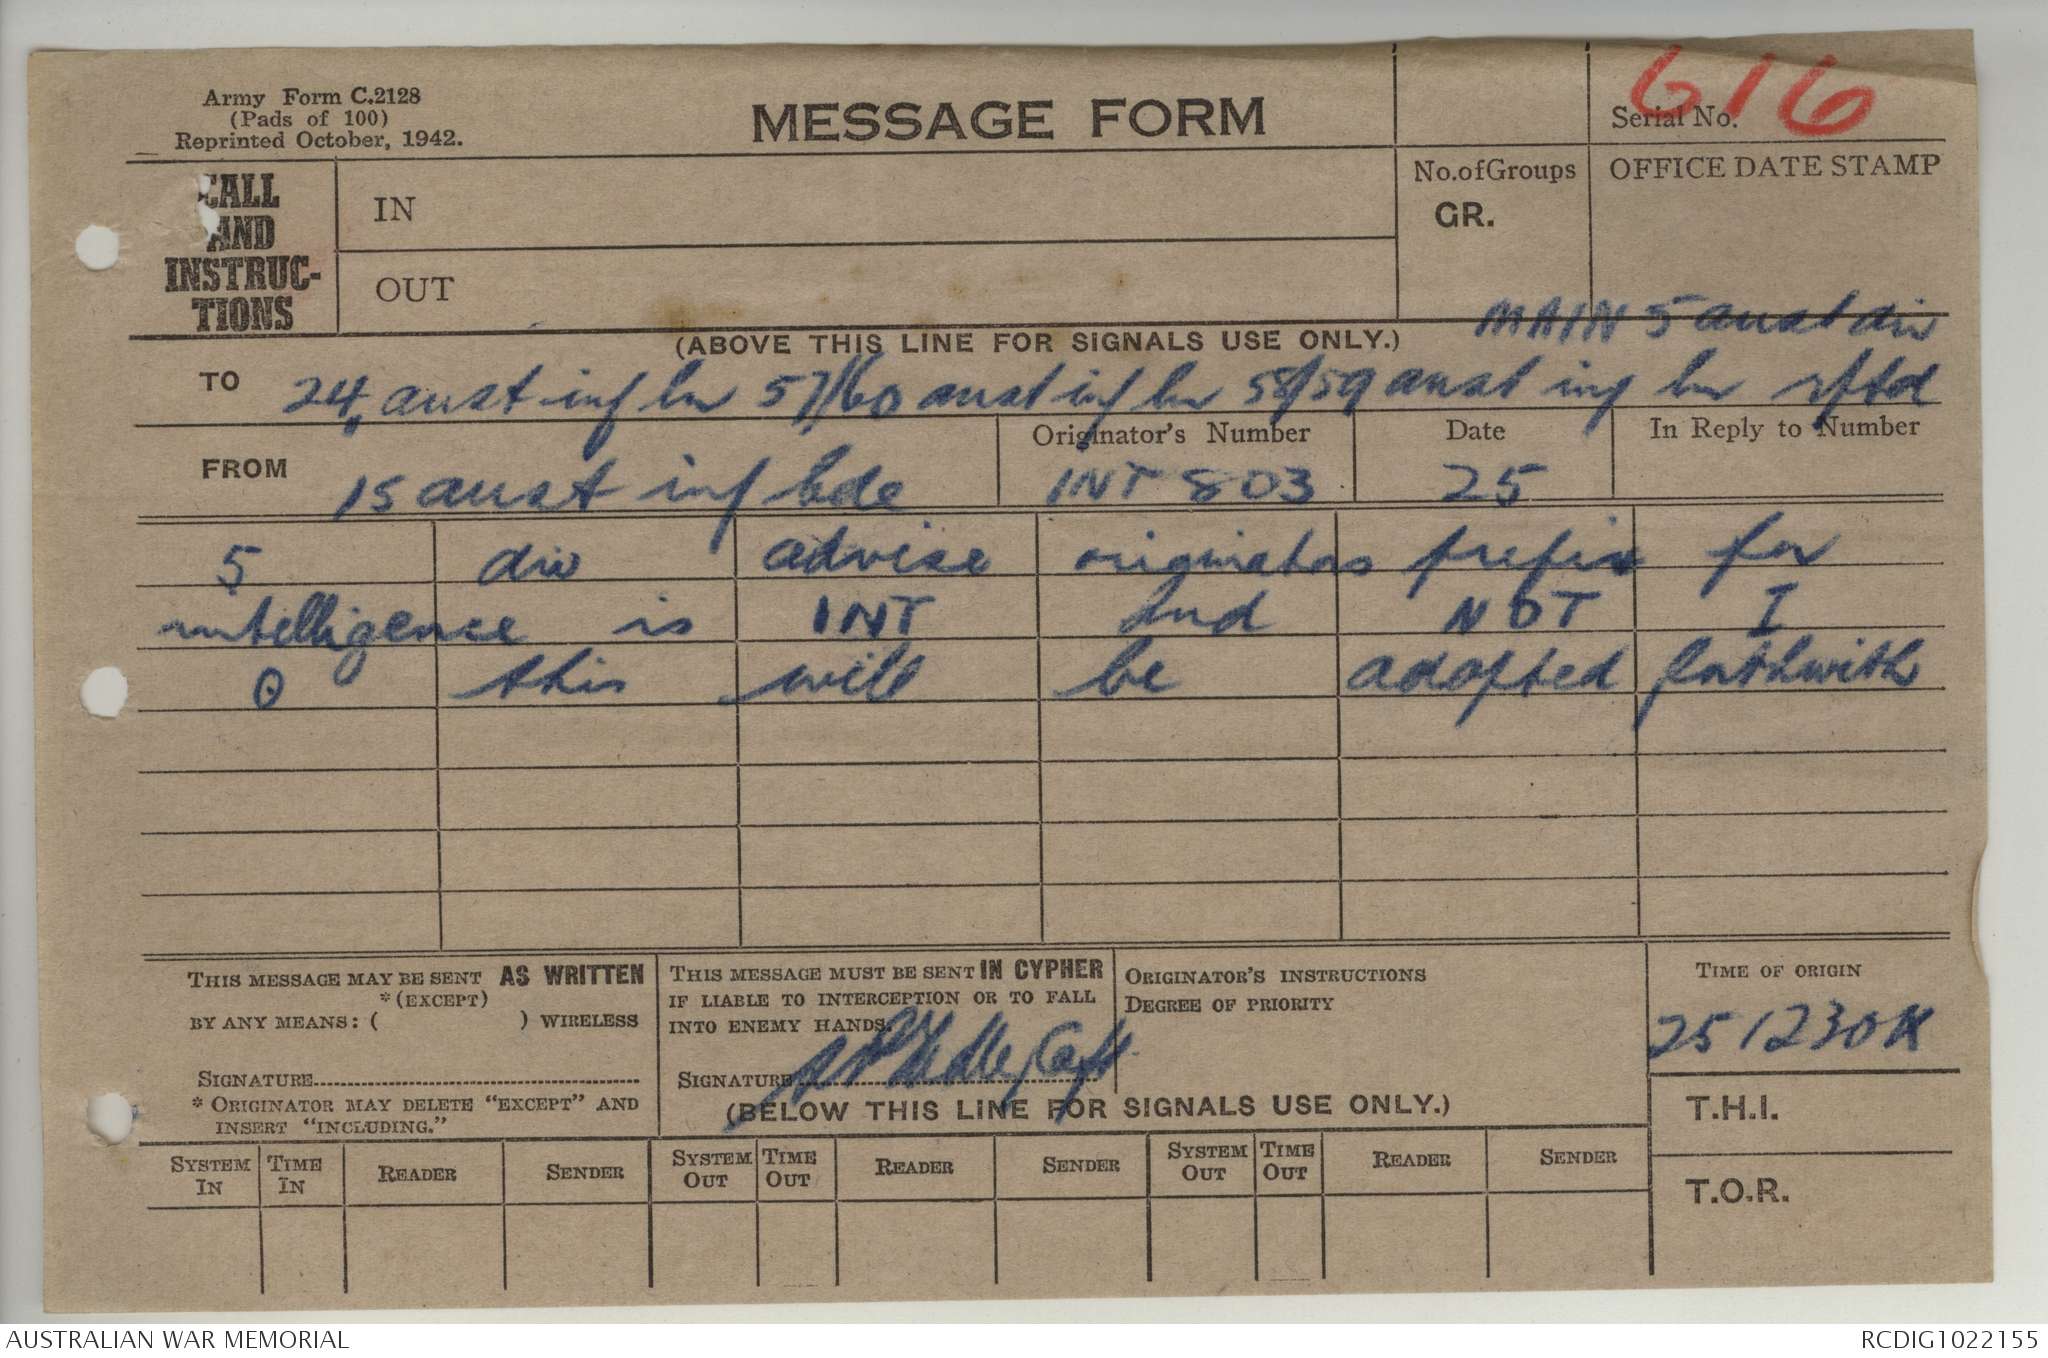 Army Form C.2128
(Pads of 100)
Reprinted October, 1942.
MESSAGE FORM
Serial No. 616
CALL AND INSTRUCTIONS
IN
OUT
No. of Groups
GR.
OFFICE DATE STAMP
(ABOVE THIS LINE FOR SIGNALS USE ONLY.)
MAIN 5 aust div
TO 24 aust inf bn 57/60 aust inf bn 58/59 aust inf bn rptd
FROM 15 aust inf bde
Originator's Number INT 803
Date 25
In Reply to Number
5 div advise originators prefix for
intelligence is INT and NOT I
0 this will be adopted forthwith
THIS MESSAGE MAY BE SENT AS WRITTEN
*(EXCEPT)
BY ANY MEANS: ( ) WIRELESS
SIGNATURE
* ORIGINATOR MAY DELETE "EXCEPT" AND
INSERT "INCLUDING."
THIS MESSAGE MUST BE SENT IN CYPHER
IF LIABLE TO INTERCEPTION OR TO FALL
INTO ENEMY HANDS.
SIGNATURE Capt
ORIGINATOR'S INSTRUCTIONS
DEGREE OF PRIORITY
TIME OF ORIGIN
251230K
(BELOW THIS LINE FOR SIGNALS USE ONLY.)
T.H.I.
T.O.R.
SYSTEM IN TIME IN READER SENDER SYSTEM OUT TIME OUT READER SENDER SYSTEM OUT TIME OUT READER SENDER
AUSTRALIAN WAR MEMORIAL
RCDIG1022155